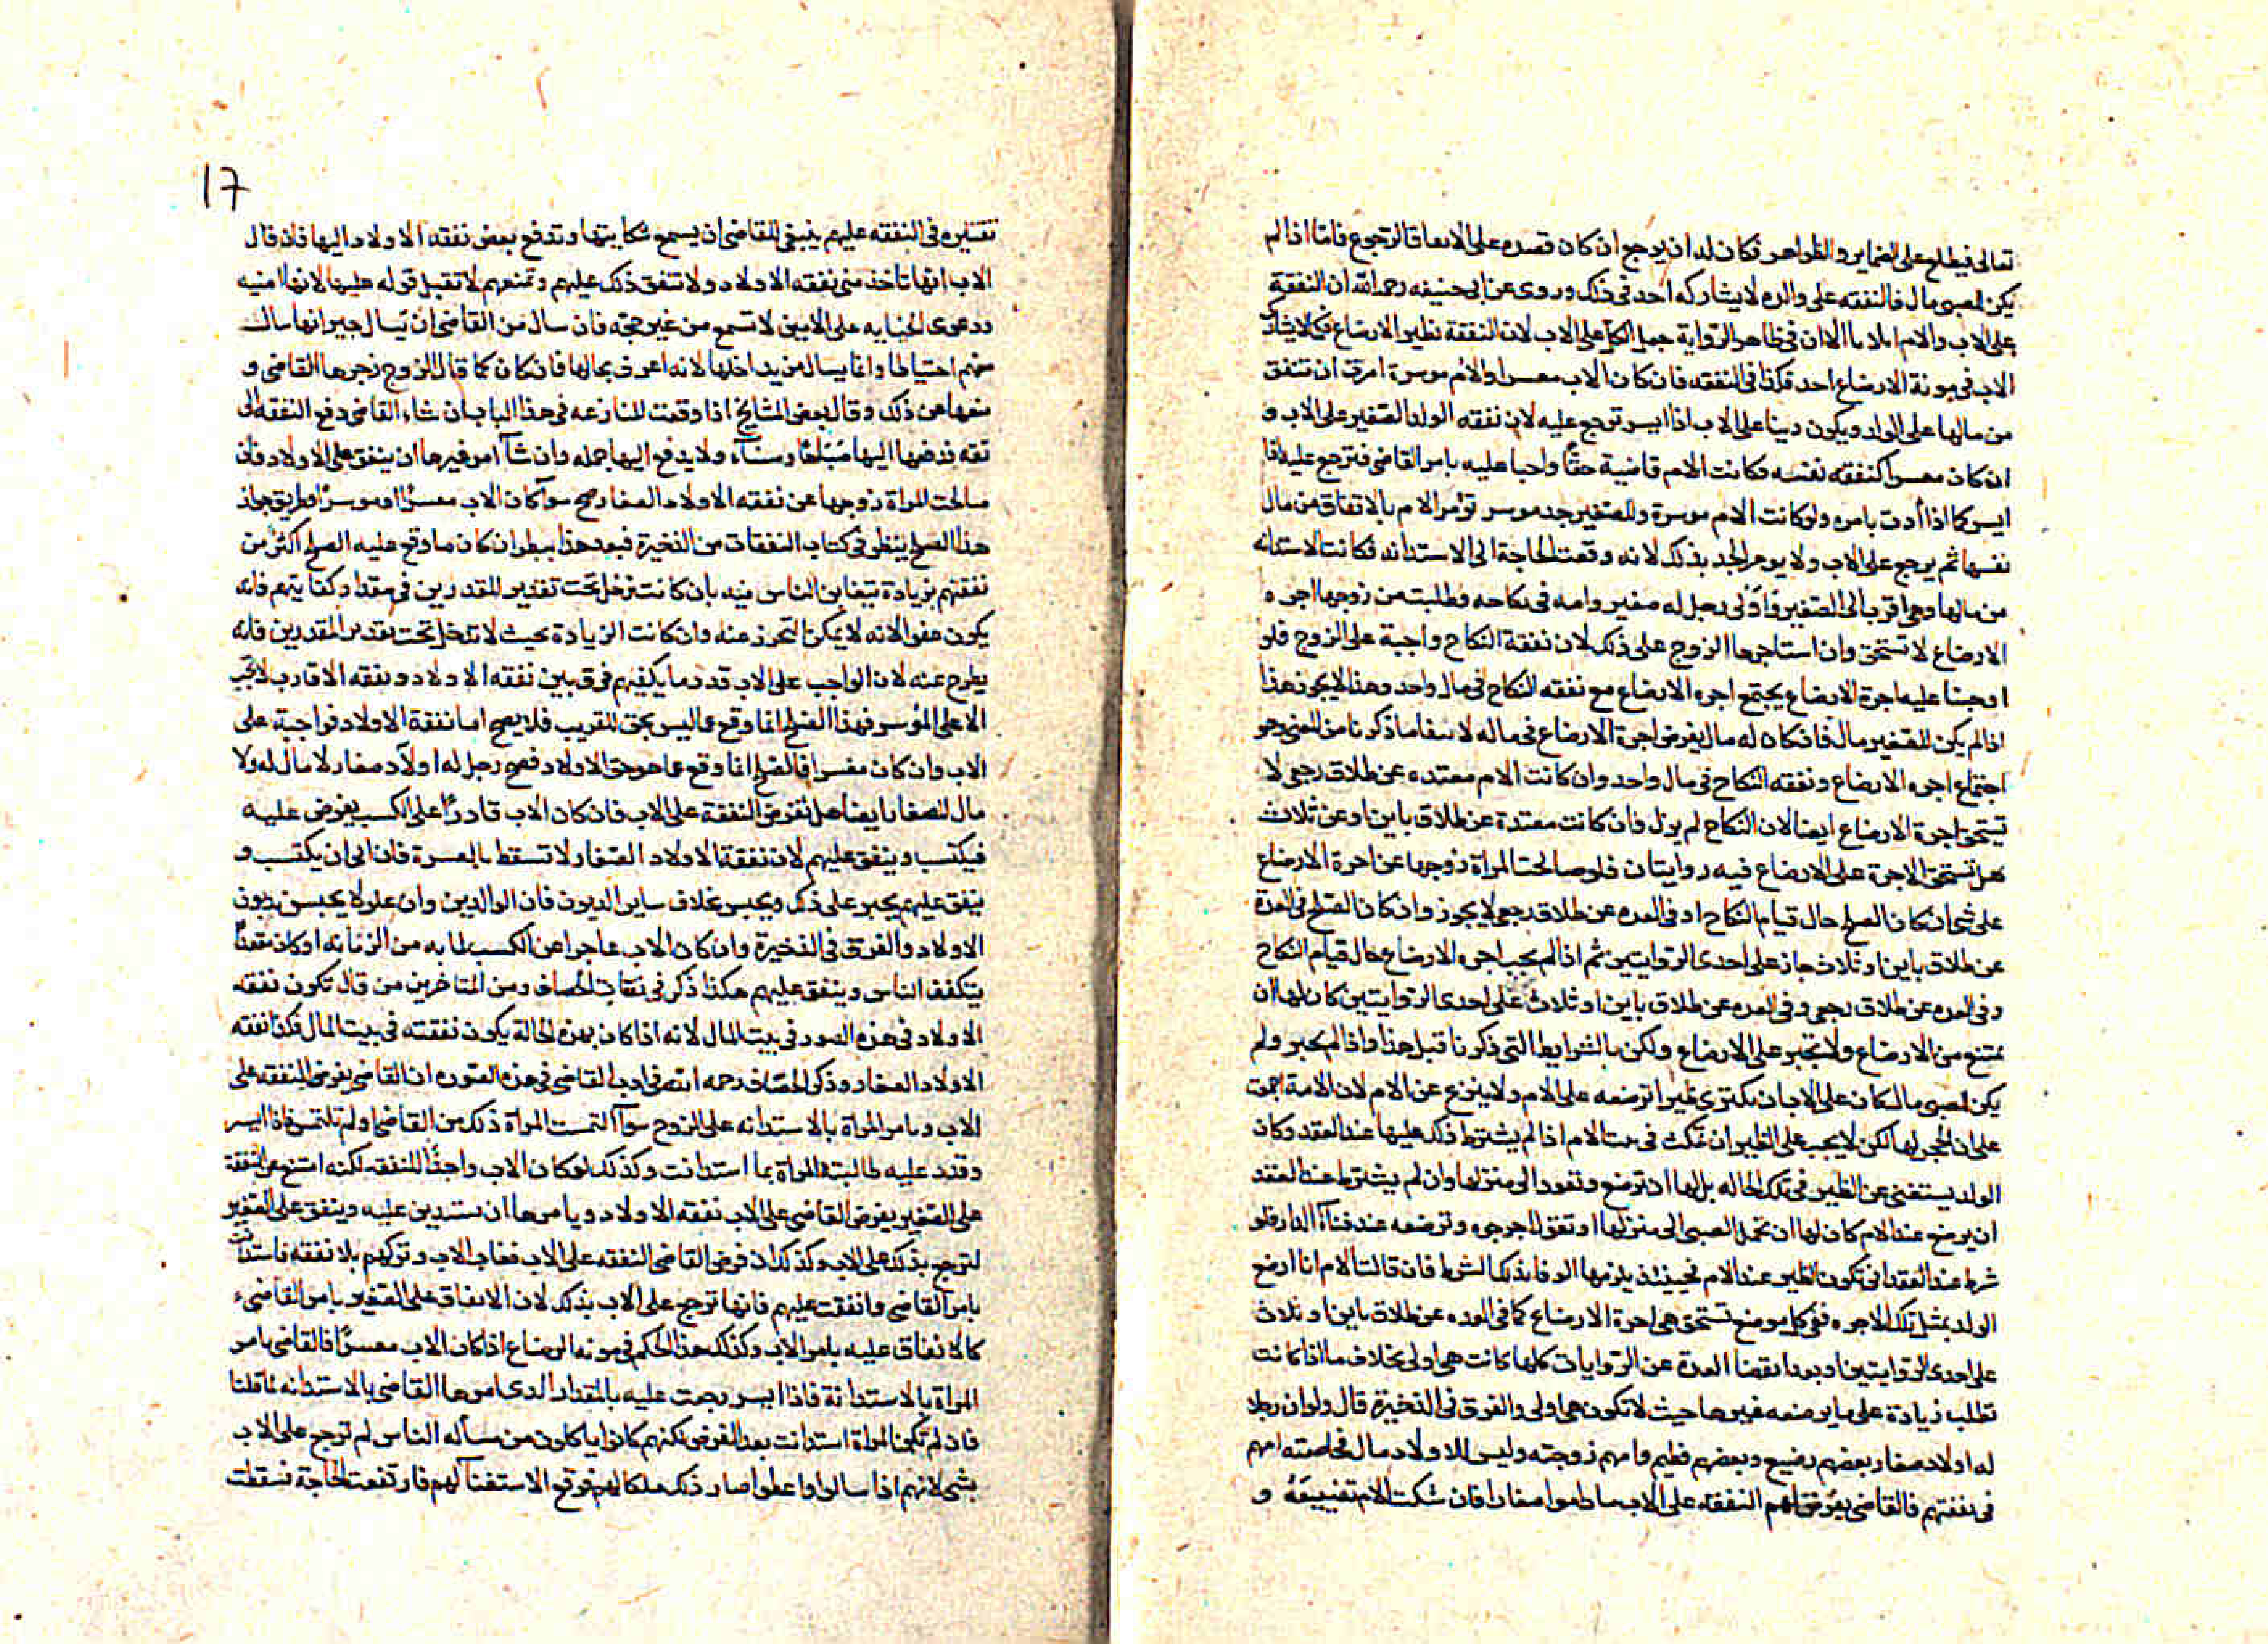 تعالى فيطلع على الضماير والظواهر فكان له ان يرجع ان كان قصده على الانفاق الرجوع فاما اذا لم
يكن للصبي مال فالنفقه على والده لا يشاركه احد في ذلك وروى عن ابي حنيفه رحمه الله ان النفقة
على الاب والام اثلاثا الا ان في ظاهر الرواية جعل الكل على الاب لان النفقة نظير الارضاع فكما لا يشارك
الاب في مونة الارضاع احد فكذا في النفقه فان كان الاب معسرا والام موسرة امرت ان تنفق
من مالها على الولد ويكون دينا على الاب اذا ايسر ترجع عليه لان نفقه الولد الصغير على الاب و
ان كان معسرا كنفقه نفسه فكانت الام قاضية حقًا واجبا عليه بامر القاضي فترجع عليه اذا
ايسر كما اذا أدت بامره ولو كانت الام موسرة وللصغير جد موسر تؤمر الام بالانفاق من مال
نفسها ثم يرجع على الاب ولا يومر الجد بذلك لانه وقعت الحاجة الى الاستدانه فكانت الاستدانه
من مالها وهي اقرب الى الصغير وأولى رجل له صغير وامه في نكاحه وطلبت من زوجها اجره
الارضاع لا تستحق وان استاجرها الزوج على ذلك لان نفقة النكاح واجبة على الزوج فلو
اوجبنا عليه اجرة الارضاع يجتمع اجره الارضاع مع نفقه النكاح في مال واحد وهذا لا يجوز هذا
اذا لم يكن للصغير مال فان كان له مال يفرض اجرة الارضاع في ماله لانتفاء ما ذكرنا من المعنى وهو
اجتماع اجره الارضاع ونفقه النكاح في مال واحد وان كانت الام معتده عن طلاق رجعى لا
تستحق اجرة الارضاع ايضا لان النكاح لم يزل فان كانت معتدة عن طلاق باين او عن ثلاث
هل تستحق الاجرة على الارضاع فيه روايتان فلو صالحت المراة زوجها عن اجرة الارضاع
على شئ ان كان الصلح حال قيام النكاح او في العده عن طلاق رجعي لا يجوز وان كان الصلح في العدة
عن طلاق باين او ثلاث جاز على احدى الروايتين ثم اذا لم يجب اجره الارضاع حال قيام النكاح
وفي العده عن طلاق رجعي وفي العده عن طلاق باين او ثلاث على احدى الروايتين كان لها ان
تمتنع من الارضاع ولا تجبر على الارضاع ولكن بالشرايط التي ذكرنا قبل هذا واذا لم يجبر ولم
يكن للصبي مال كان على الاب ان يكترى ظيرا ترضعه على الام ولا ينزع عن الام لان الامة اجمعت
على ان الحجر لها لكن لا يجب على الظير ان تمكث في بيت الام اذا لم يشترط ذلك عليها عند العقد وكان
الولد يستغنى عن الظير في تلك الحاله بل لها ان ترضع وتعود الى منزلها وان لم يشترط عند العقد
ان يرضع عند الام كان لها ان تحمل الصبي الى منزلها او تقول اخرجوه وترضعه عند فناء الدار فلو
شرط عند العقد ان تكون الظير عند الام فحينئذ يلزمها الوفا بذلك الشرط فان قالت الام انا ارضع
الولد بمثل تلك الاجره ففي كل موضع تستحق هي اجرة الارضاع كما في العده عن طلاق باين او ثلاث
على احدى الروايتين او بعد انقضا العدة عن الروايات كلها كانت هي اولى بخلاف ما اذا كانت
تطلب زيادة على ما يرضعه غيرها حيث لا تكون هي اولى والفرق في الذخيرة قال ولو ان رجلا
له اولاد صغار بعضهم رضيع وبعضهم فطيم وامهم زوجته وليس للاولاد مال فخاصمته امهم
في نفقتهم فالقاضي يفرض لهم النفقه على الاب ما داموا صغارا فان شكت الام تضييقه و
17
تقتيره في النفقه عليهم ينبغي للقاضي ان يسمع شكايتها وتدفع بعض نفقه الاولاد اليها فان قال
الاب انها تاخذ مني نفقه الاولاد ولا تنفق ذلك عليهم وتمنعهم لا تقبل قوله عليها لانها امنيه
ودعوى الخيانه على الامين لا تسمع من غير حجة فان سال من القاضي ان يسال جيرانها سال
منهم احتياطا وانما يسال من يداخلها لانه اعرف بحالها فان كان كما قال الزوج زجرها القاضي و
منعها عن ذلك وقال بعض المشايخ اذا وقعت المنازعه في هذا الباب ان شاء القاضي دفع النفقه الى
ثقه فدفعها اليها صباحًا ومساء ولا يدفع اليها جمله وان شاء امر غيرها ان ينفق على الاولاد فان
صالحت المراة زوجها عن نفقه الاولاد الصغار صح سواء كان الاب معسرًا او موسرًا وطريق جواز
هذا الصلح ينظر في كتاب النفقات من الذخيرة فبعد هذا ينظر ان كان ما وقع عليه الصلح اكثر من
نفقتهم بزيادة يتغابن الناس فيه بان كانت تدخل تحت تقدير المقدرين في مقدار كفايتهم فانه
يكون عفوا لانه لا يمكن التحرز عنه وان كانت الزيادة بحيث لا تدخل تحت تقدير المقدرين فانه
يطرح عنه لان الواجب على الاب قدر ما يكفيهم فرق بين نفقه الاولاد ونفقه الاقارب لا تجب
الا على المؤسر فهذا الصلح انما وقع عما ليس بحق للقريب فلا يصح اما نفقة الاولاد فواجبة على
الاب وان كان معسرا فالصلح انما وقع عما هو حق الاولاد فصح رجل له اولاد صغار لا مال له ولا
مال للصغار ايضا هل تفرض النفقة على الاب فان كان الاب قادرًا على الكسب يفرض عليه
فيكتسب وينفق عليهم لان نفقة الاولاد الصغار لا تسقط بالعسرة فان ابى ان يكتسب و
ينفق عليهم يجبر على ذلك ويحبس بخلاف ساير الديون فان الوالدين وان علو لا يحبسن بديون
الاولاد والفرق في الذخيرة وان كان الاب عاجزا عن الكسب لما به من الزمانه او كان مقعدًا
يتكفف الناس وينفق عليهم هكذا ذكر في نفقات الخصاف ومن المتاخرين من قال تكون نفقه
الاولاد في هذه الصور في بيت المال لانه اذا كان بهذه الحالة يكون نفقته في بيت المال فكذا نفقه
الاولاد الصغار وذكر الخصاف رحمه الله في ادب القاضي في هذه الصوره ان القاضي يفرض النفقه على
الاب ويامر المراة بالاستدانه على الزوج سواء التمست المراة ذلك من القاضي او لم تلتمس فاذا ايسر
وقدر عليه طالبته المراة بما استدانت وكذلك لو كان الاب واجدًا للنفقه لكنه امتنع عن النفقة
على الصغير يفرض القاضي على الاب نفقه الاولاد ويامرها ان تستدين عليه وينفق على الصغير
لترجع بذلك على الاب وكذلك ان فرض القاضي النفقه على الاب فغاب الاب وتركهم بلا نفقه فاستدانت
بامر القاضي وانفقت عليهم فانها ترجع على الاب بذلك لان الانفاق على الصغير بامر القاضي
كالانفاق عليه بامر الاب وكذلك هذا الحكم في مونه الرضاع اذا كان الاب معسرًا فالقاضي يامر
المراة بالاستدانة فاذا ايسر رجعت عليه بالمقدار الذي امرها القاضي بالاستدانه لما قلنا
فان لم تكن المراة استدانت بعد الفرض لكنهم كانوا ياكلون من مسألة الناس لم ترجع على الاب
بشئ لانهم اذا سالوا واعطوا صار ذلك ملكا لهم فوقع الاستغناء لهم فارتفعت الحاجة فسقطت